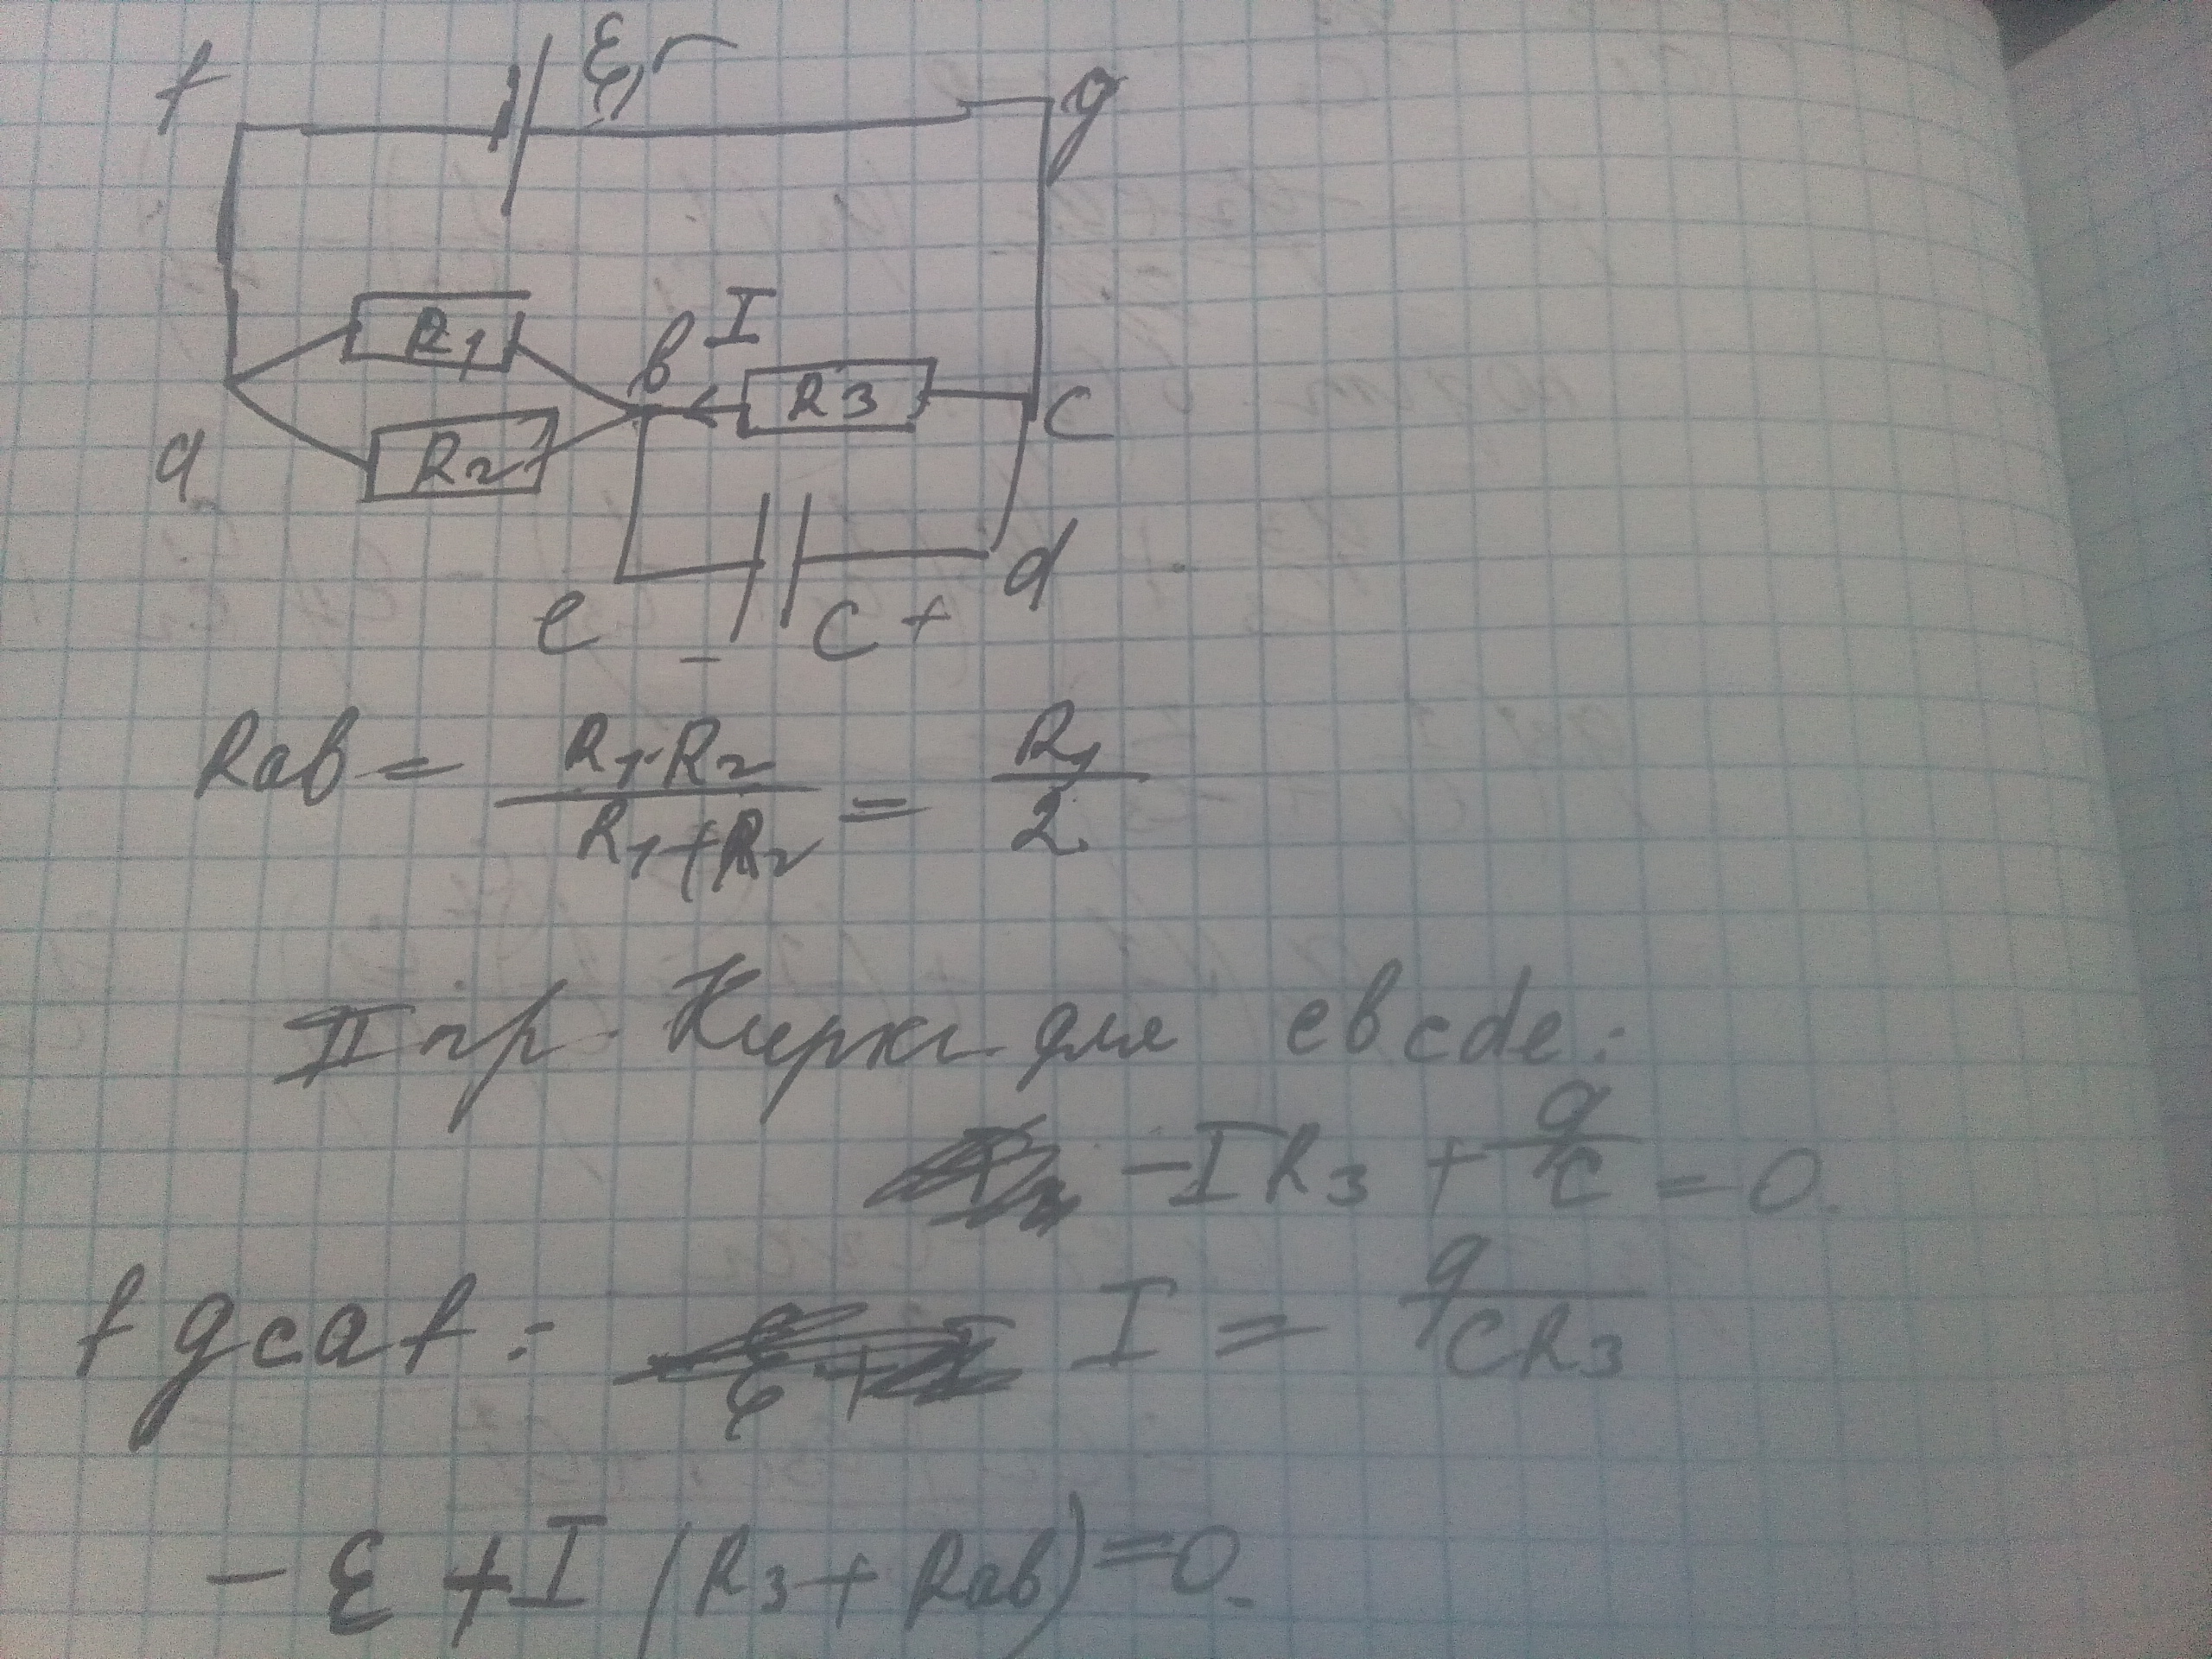 f ℰ, r g
R1 b I R3 c
a R2
e - C + d
Rab = R1·R2 / R1+R2 = R1 / 2
II пр. Кирхг. для ebcde:
-IR3 + q/C = 0.
fgcaf: I = q/CR3
-ℰ + I (R3 + Rab) = 0.